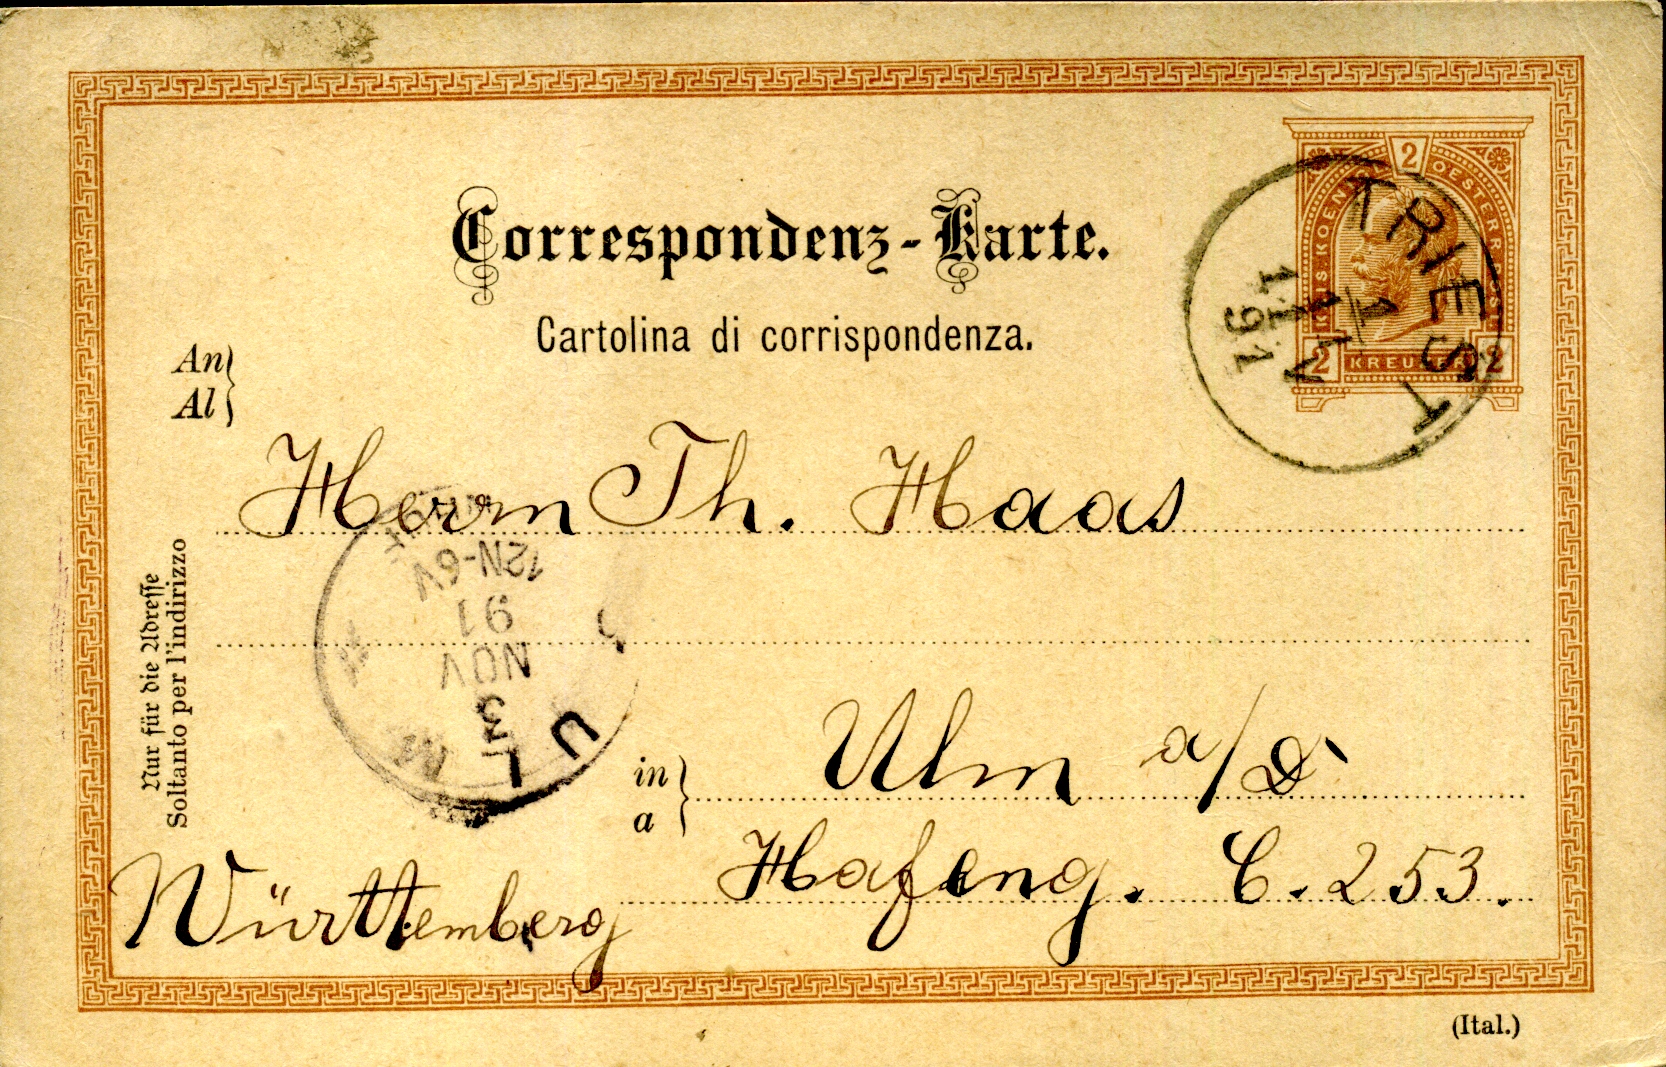 Correspondenz-Karte.
Cartolina di corrispondenza.
2
KAIS KOENIGL OESTERR POST
2 KREUZER 2
TRIEST
1
11
91
An
Al
Herrn Th. Haas
12N-6V
91
NOV
3
ULM
Nur für die Adresse
Soltanto per l'indirizzo
in
a
Ulm a/D
Hafeng. C. 253.
Württemberg
(Ital.)